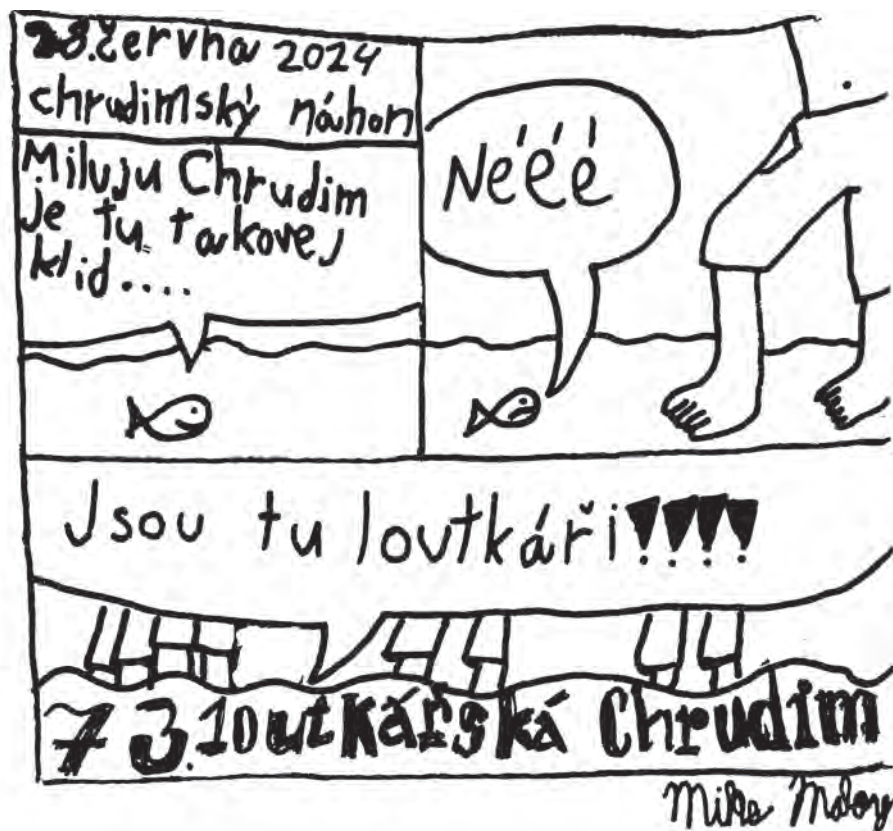 28.června 2024
chrudimský náhon
Miluju Chrudim
je tu takovej
klid....
Nééé
Jsou tu loutkáři!!!!
73.loutkářská Chrudim